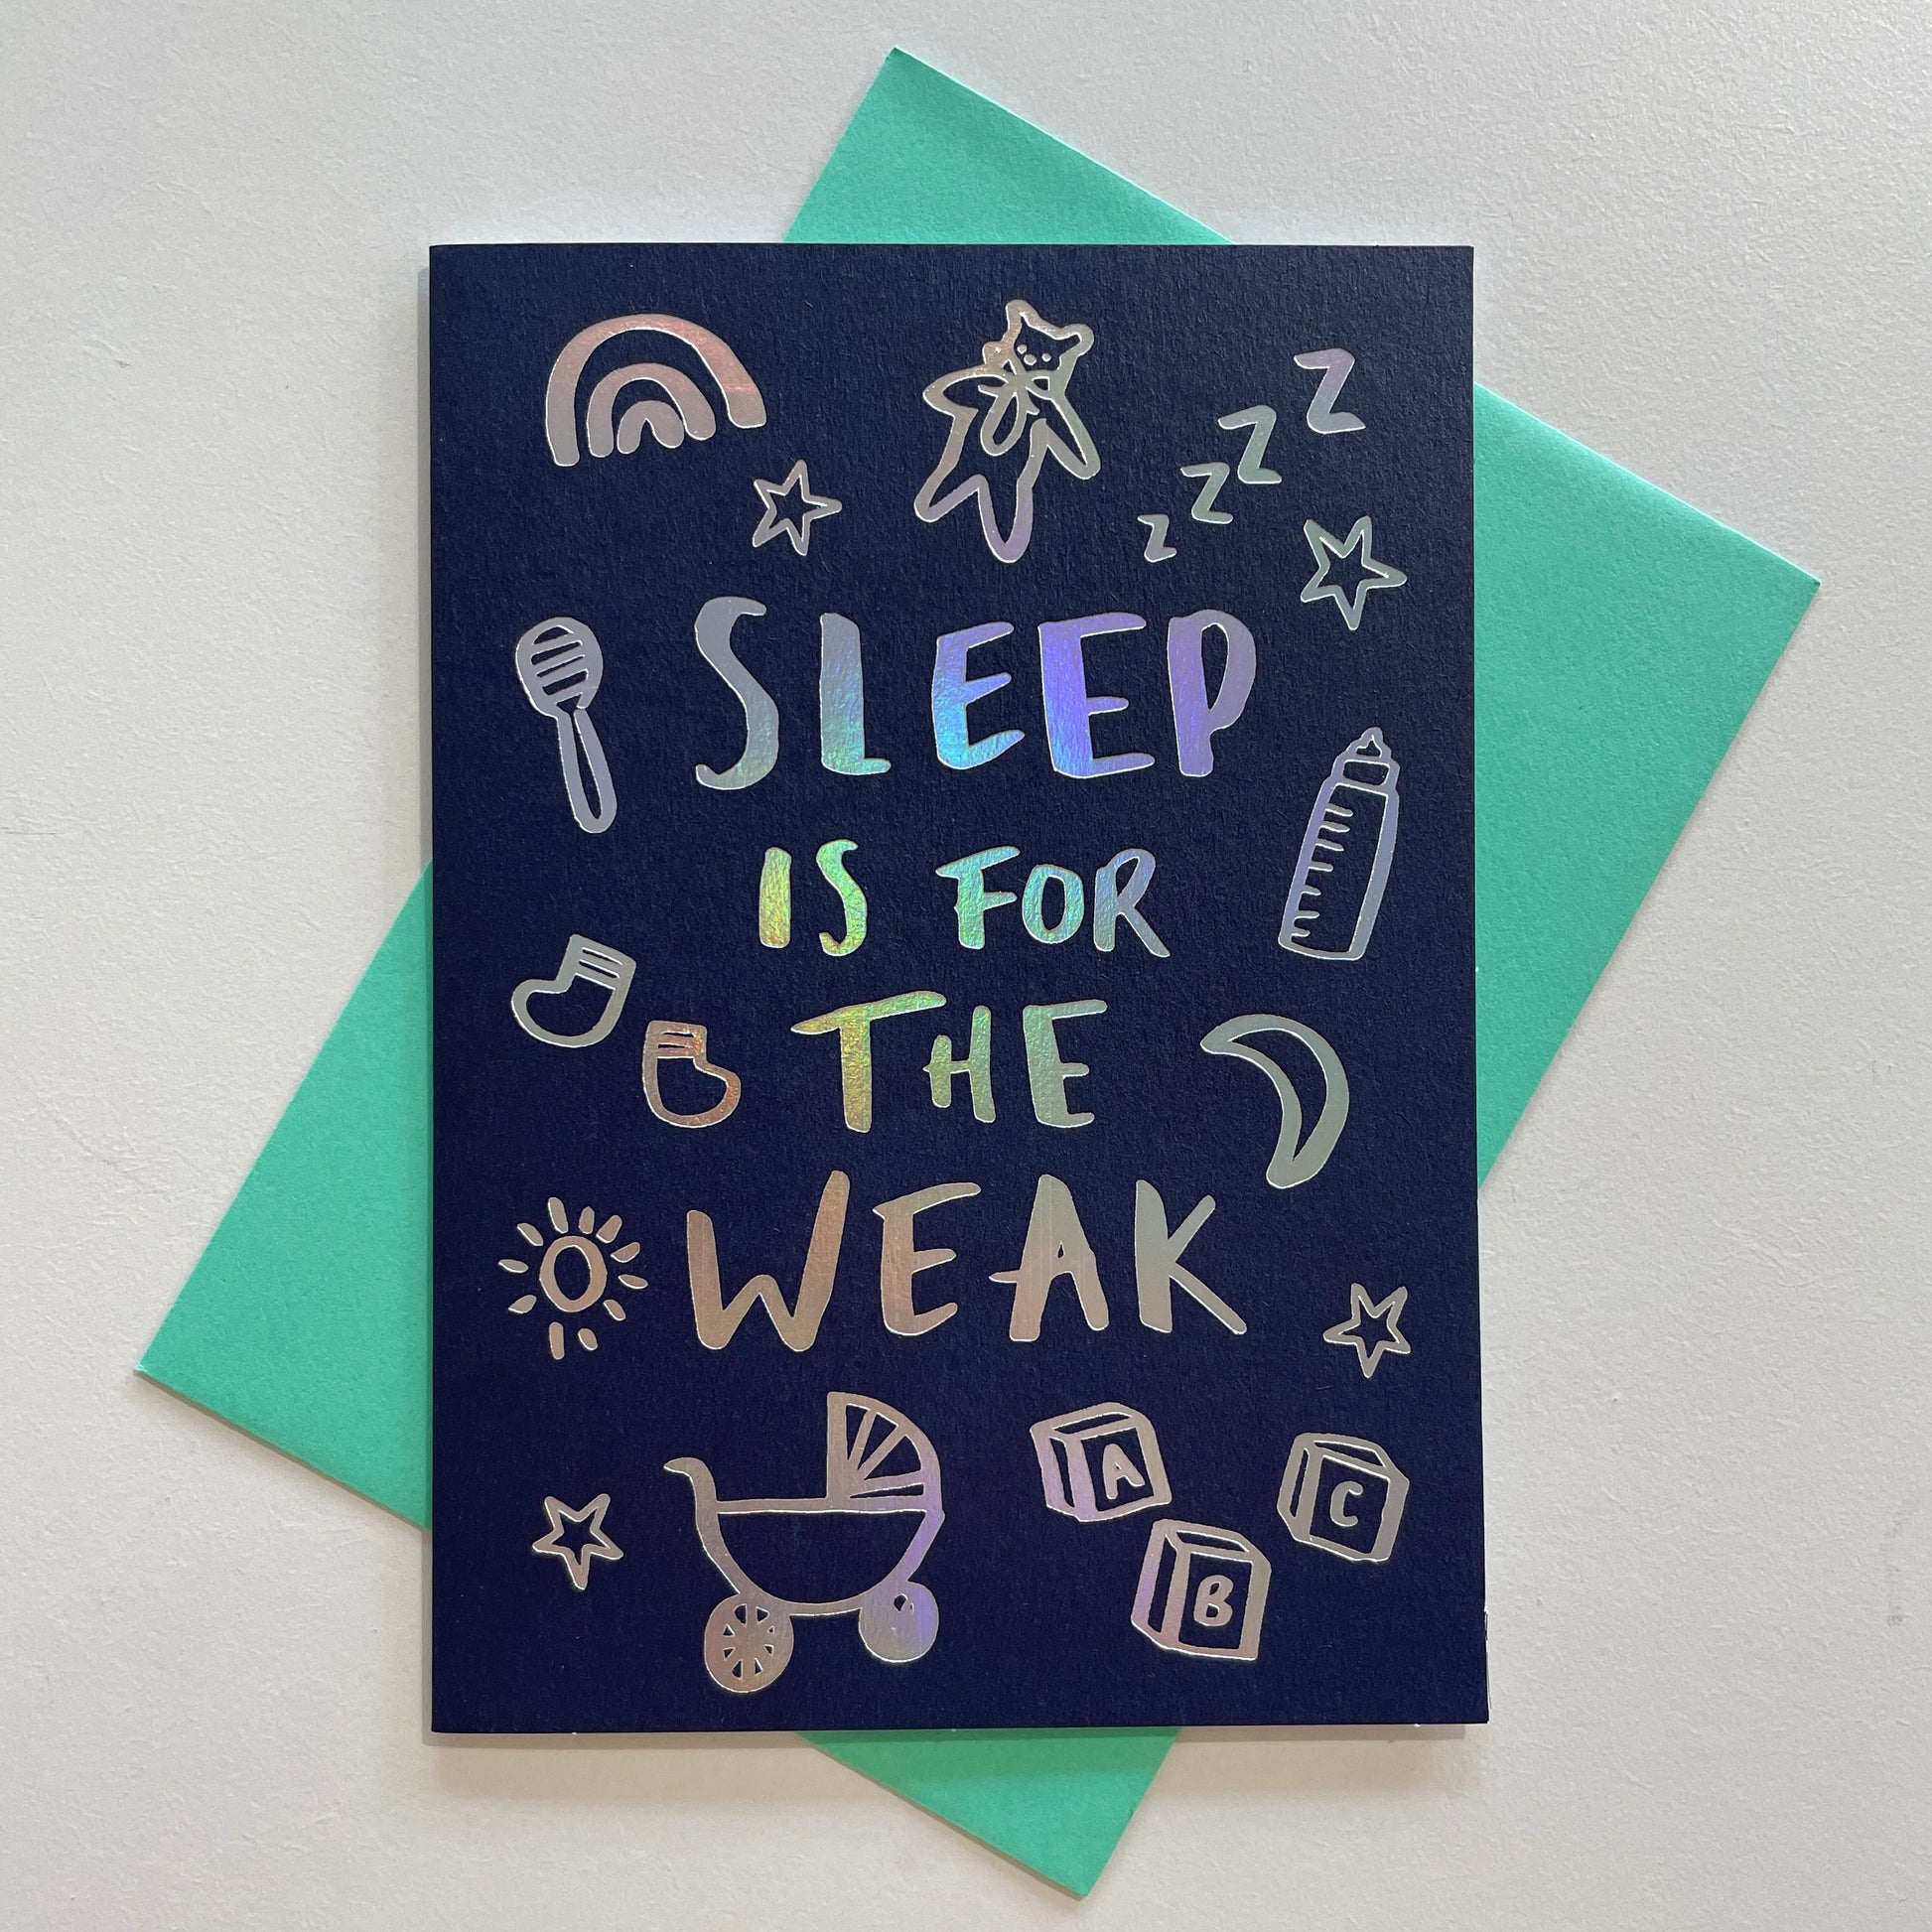 Z
Z
Z
Z
SLEEP
IS FOR
THE
WEAK
A
C
B